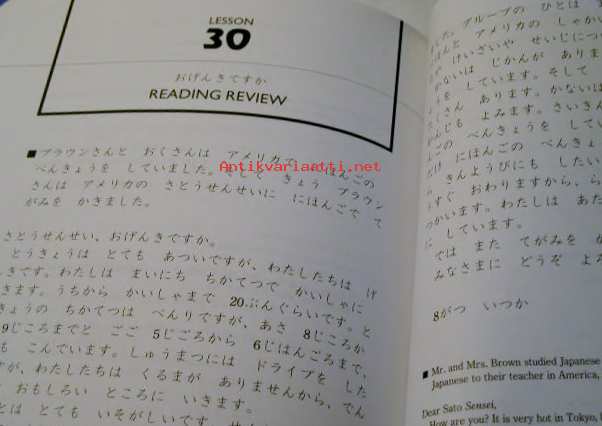 LESSON
30
おげんきですか
READING REVIEW
■ ブラウンさんと おくさんは アメリカで にほんごの
べんきょうを していました。そして きょう ブラウン
さんは アメリカの さとうせんせいに にほんごで て
がみを かきました。
Antikvariaatti.net
さとうせんせい、おげんきですか。
とうきょうは とても あついですが、わたしたちは げ
きです。わたしは まいにち ちかてつで かいしゃに
きます。うちから かいしゃまで 20ぷんぐらいです。と
きょうの ちかてつは べんりですが、あさ 8じごろか
9じごろまでと ごご 5じごろから 6じはんごろまで、
も こんでいます。しゅうまつには ドライブを した
が、わたしたちは くるまが ありませんから、でん
おもしろい ところに いきます。
とは とても いそがしいです。
ました グループの ひとは
ほんと アメリカの しゃかい
けいざいや せいじにつ
かないは じかんが ありま
を しています。そして
くさん あります。かないは
んじも よみます。さいきん
んごの べんきょうを してい
だけ にほんごの べんきょ
きんようびにも したい
うすぐ おわりますから、ら
つかいます。わたしは あた
に しています。
では また てがみを か
みなさまに どうぞ よ
8がつ いつか
■ Mr. and Mrs. Brown studied Japanese
Japanese to their teacher in America,
Dear Sato Sensei,
How are you? It is very hot in Tokyo,